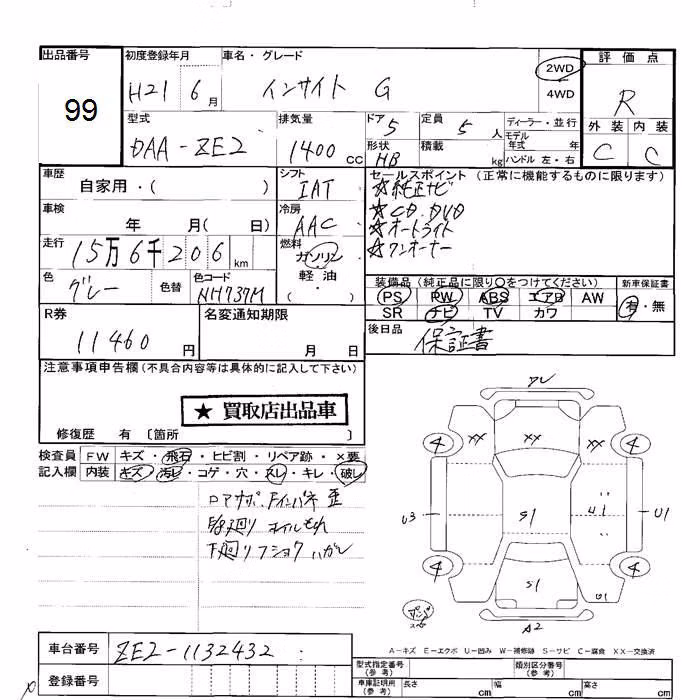 出品番号
99
初度登録年月
H21 6月
車名・グレード
インサイト G
2WD
4WD
評価点
R
外装 内装
C C
型式
DAA-ZE2
排気量
1400cc
ドア 5
形状 HB
定員 5人
積載 kg
ディーラー・並行
モデル年式 年
ハンドル 左・右
車歴
自家用・( )
シフト
IAT
セールスポイント (正常に機能するものに限ります)
☆純正ナビ
☆CD.DVD
☆オートライト
☆ワンオーナー
車検
年 月( 日)
冷房
AAC
走行
15万6千206km
燃料
ガソリン
軽油
( ・ )
色
グレー
色替
色コード
NH737M
装備品 (純正品に限り○をつけてください)
PS PW ABS エアB AW
SR ナビ TV カワ
新車保証書
有・無
R券
11460円
名変通知期限
月 日
後日品
保証書
注意事項申告欄(不具合内容等は具体的に記入して下さい)
★ 買取店出品車
修復歴 有 〔箇所 〕
検査員記入欄
FW キズ・飛石・ヒビ割・リペア跡・×要
内装 キズ・汚レ・コゲ・穴・スレ・キレ・破レ
下廻リ
アレ
XX XX XX
4 4
U3 S1 U1 U1
4 4
S1 U1
A2
A-キズ E-エクボ U-凹み W-補修跡 S-サビ C-腐食 XX-交換済
車台番号
ZE2-1132432
登録番号
型式指定番号(参考)
類別区分番号(参考)
車庫証明用(参考)
長さ cm
幅 cm
高さ cm